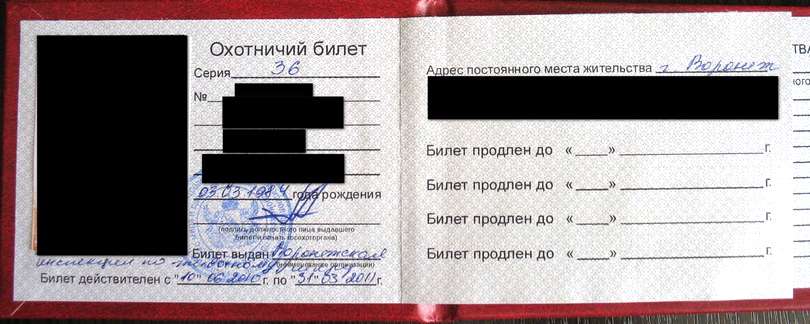 Охотничий билет
Серия 36
№
03.03.1984 года рождения
(подпись должностного лица выдавшего
билет, печать госохоторгана)
Билет выдан Воронежская
инспекция по
(наименование организации)
Билет действителен с "10" 06 2010 г. по "31" 03 2011 г.
Адрес постоянного места жительства г. Воронеж
Билет продлен до « » г.
Билет продлен до « » г.
Билет продлен до « » г.
Билет продлен до « » г.